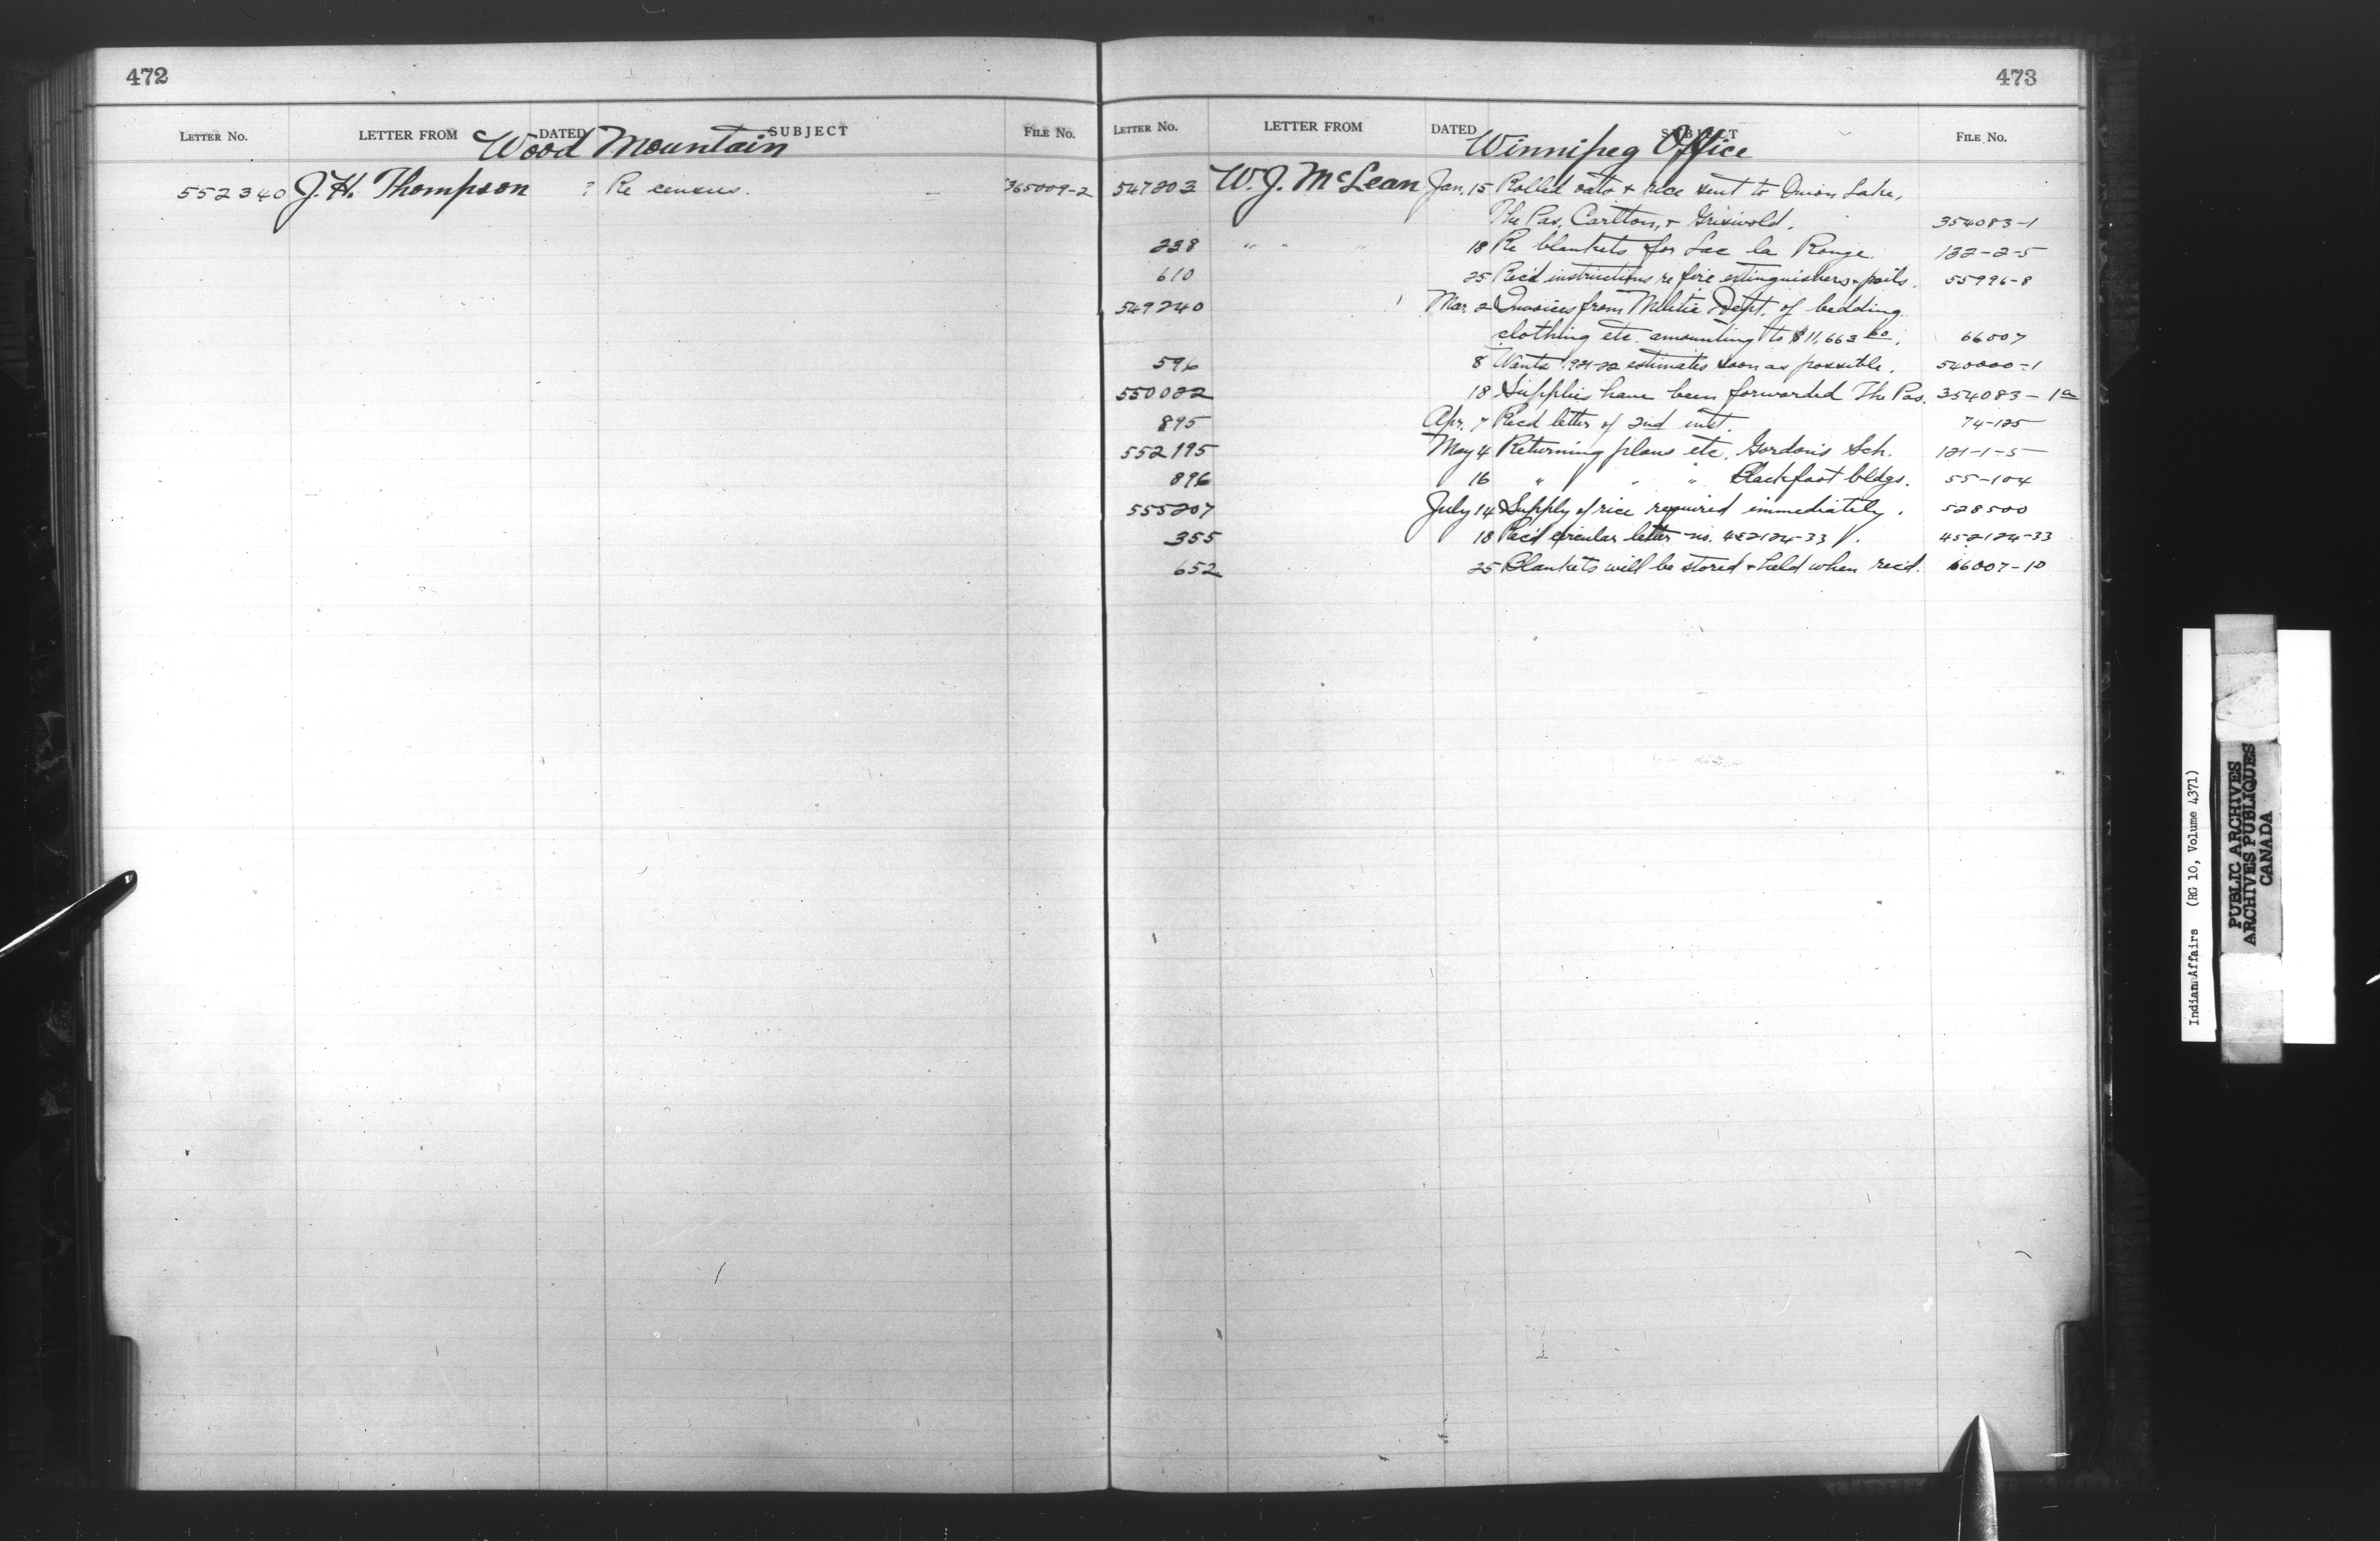 472
LETTER No. LETTER FROM DATED SUBJECT FILE No.
Wood Mountain
552340 J. H. Thompson ? Re census. 365009-2
473
LETTER No. LETTER FROM DATED SUBJECT FILE No.
Winnipeg Office
547203 W. J. McLean Jan. 15 Rolled oats & rice sent to Onion Lake,
The Pas, Carlton, & Griswold. 354083-1
238 " " " 18 Re blankets for Lac la Ronge. 122-2-5
610 25 Rec'd instructions re fire extinguishers & pails. 55996-8
549240 Mar. 2 Invoices from Militia Dept. of bedding
clothing etc. amounting to $11,663 66007
596 8 Wants 1921-22 estimates soon as possible. 540000-1
550022 18 Supplies have been forwarded The Pas. 354083-1a
895 Apr. 7 Rec'd letter of 2nd inst. 74-125
552195 May 4 Returning plans etc. Gordon's Sch. 121-1-5
896 16 " " " Blackfoot bldgs. 55-104
555207 July 14 Supply of rice required immediately. 528500
355 18 Rec'd circular letter no. 452124-33. 452124-33
652 25 Blankets will be stored & held when rec'd. 66007-10
Indian Affairs (RG 10, Volume 4371)
PUBLIC ARCHIVES
ARCHIVES PUBLIQUES
CANADA